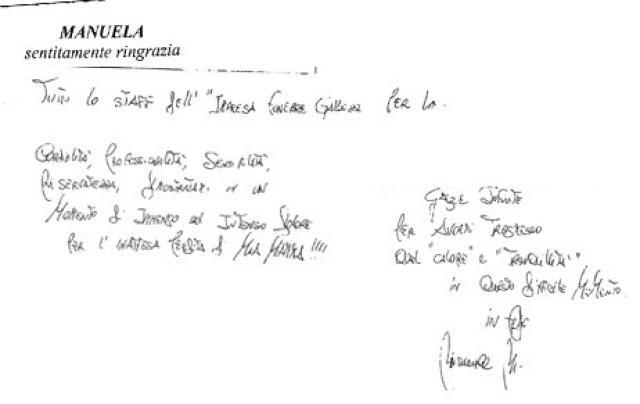 MANUELA
sentitamente ringrazia
Tutto lo STAFF dell' "IMPRESA FUNEBRE PER LA
CORDIALITÀ, PROFESSIONALITÀ, SENSIBILITÀ,
RISERVATEZZA, IN UN
MOMENTO DI IMMENSO ED INTENSO DOLORE
PER L' INATTESA PERDITA DI MIA MAMMA !!!!
GRAZIE INFINITE
PER AVERMI TRASMESSO
QUEL "CALORE" E "TRANQUILLITÀ"
IN QUESTO DIFFICILE MOMENTO.
IN FEDE